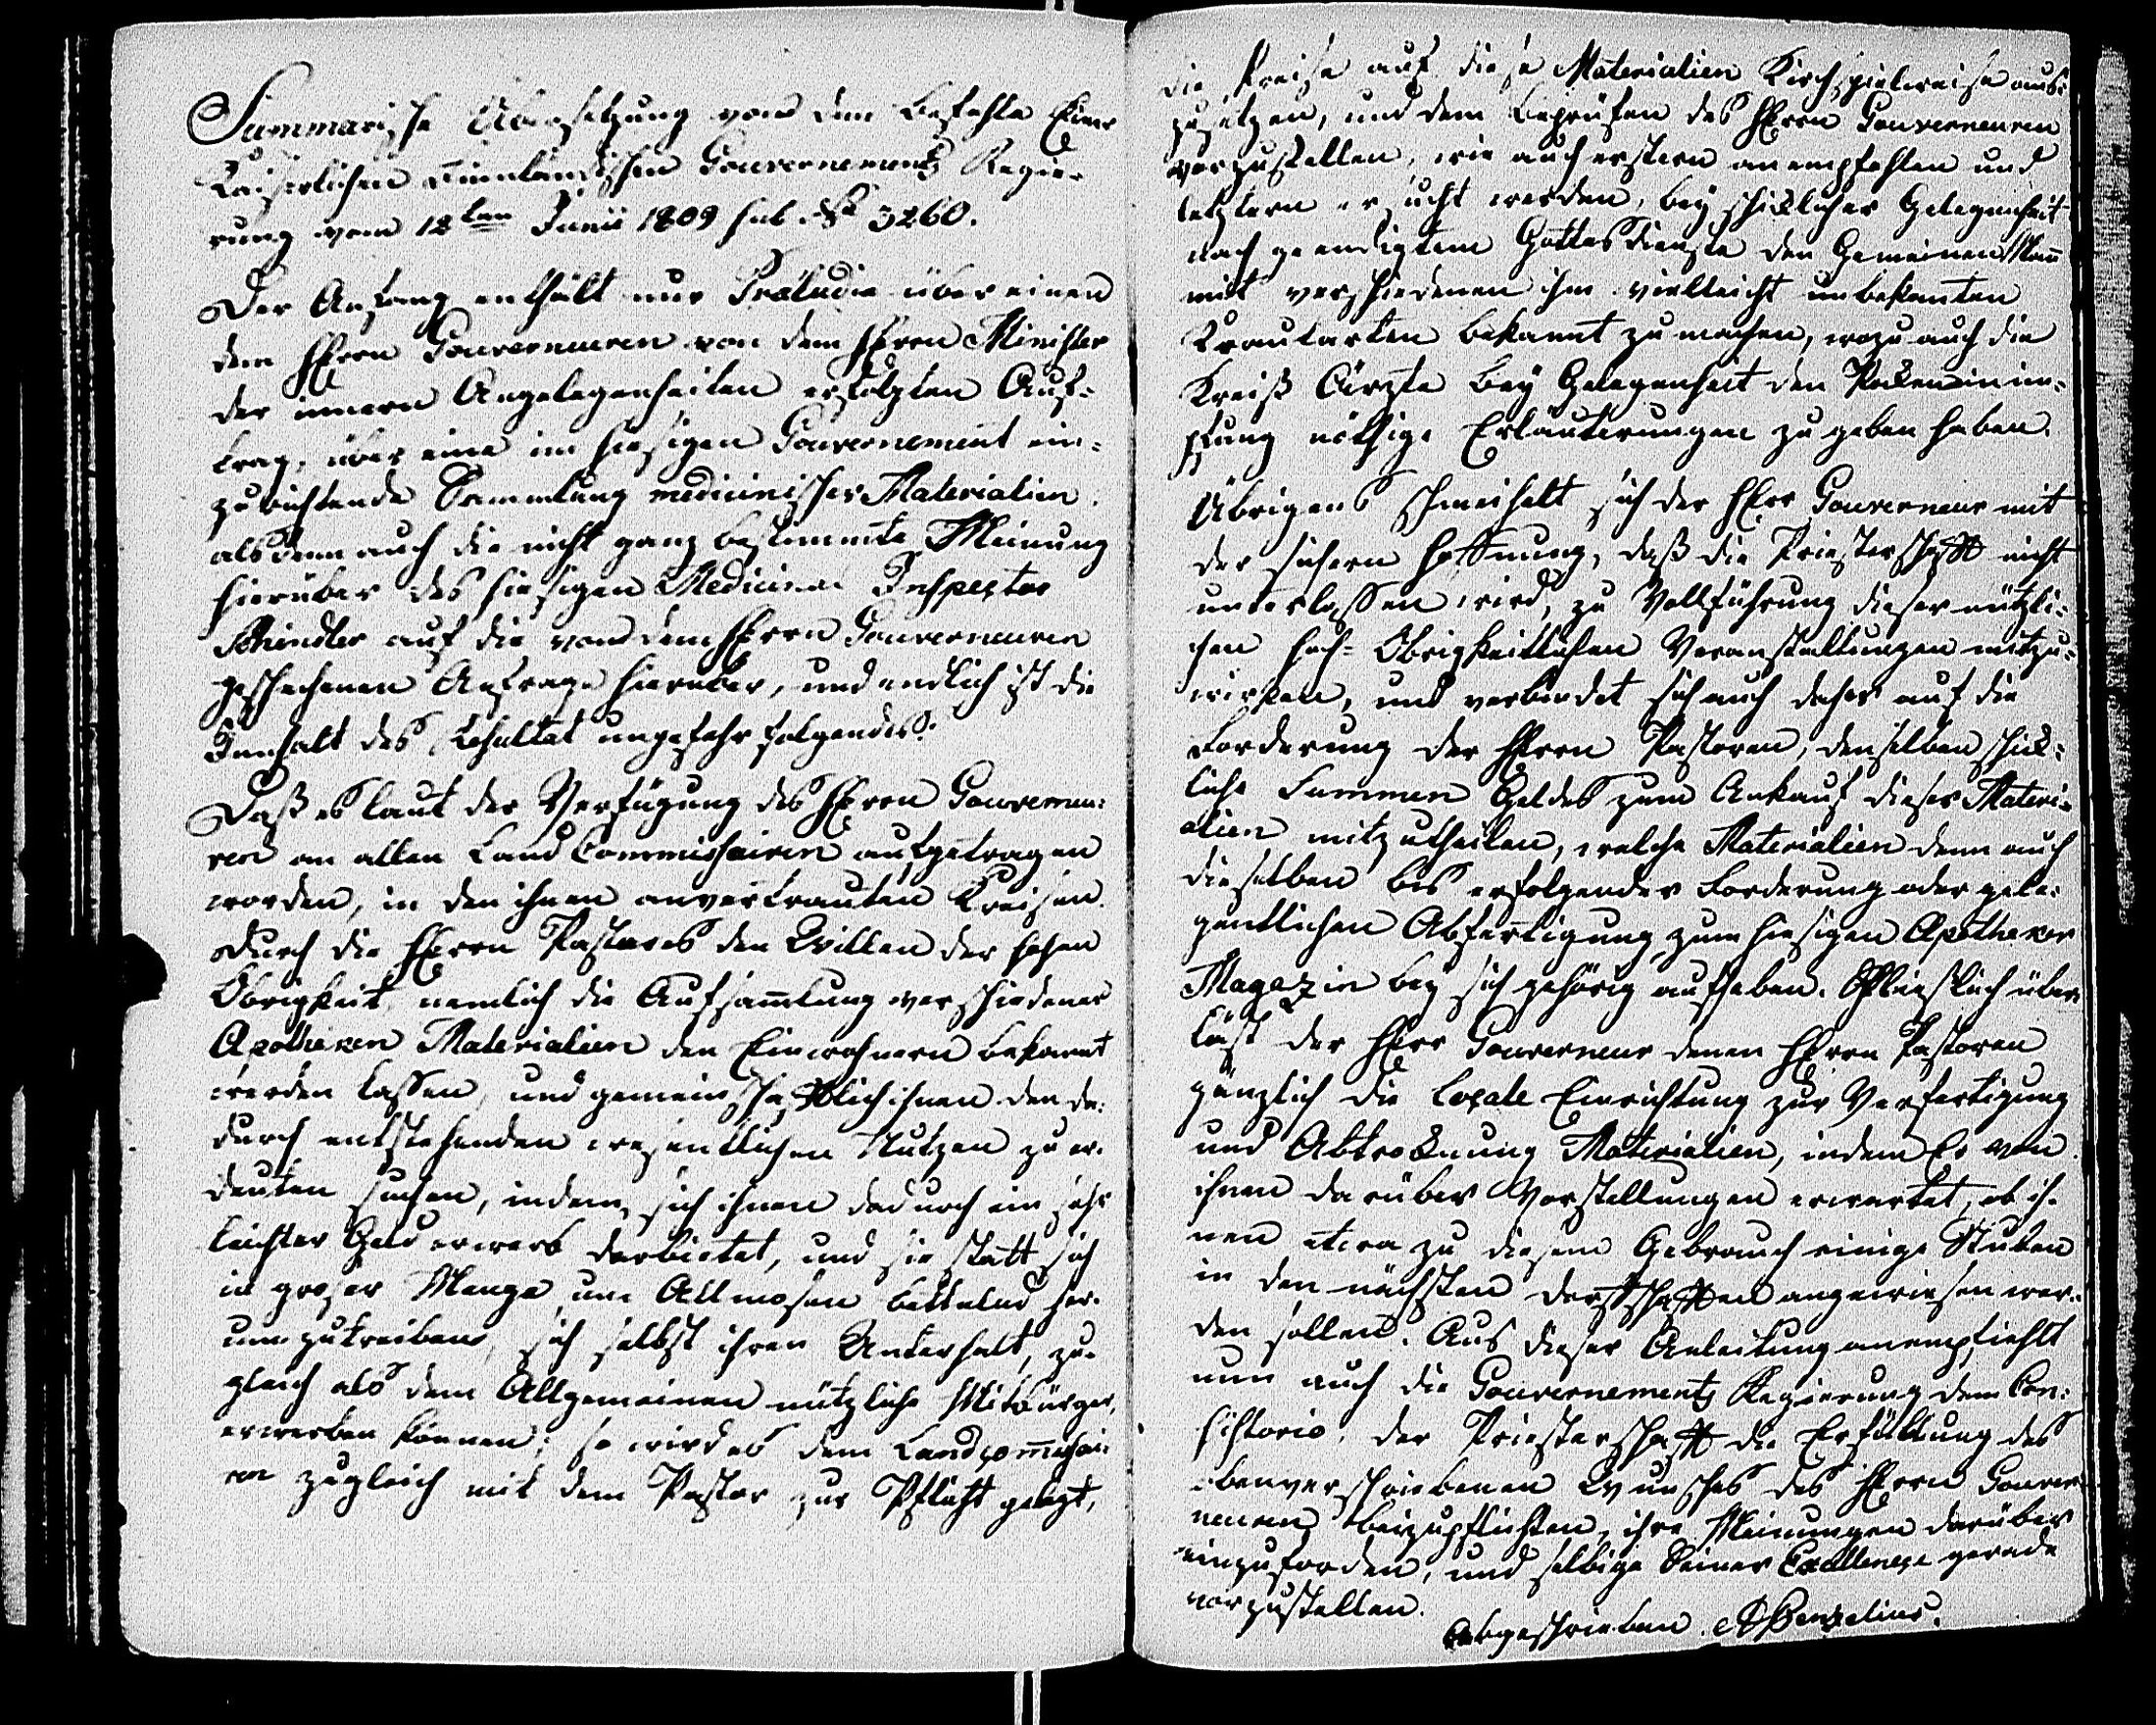 Summarische Übersetzung von dem Befehle Einer
Kaiserlichen Finnländischen Gouvernements Regie-
rung vom 12ten Junii 1809 sub No 3260.
Der Anfang enthält nur Präludia über einen
dem HErrn Gouverneuren von dem HErrn Minister
der innern Angelegenheiten erfolgten Auf-
trag, über eine im hiesigen Gouvernement ein-
zurichtende Sammlung medicinischer Materialien.
alsdenn auch die nicht ganz bestimmte Meinung
hierüber des hiesigen Medicinal Inspector
Schindler auf die von dem HErrn Gouverneuren
geschechenen Anfrage hierüber, und endlich ist die
Innhalt des Resultat ungefehr folgendes:
Daß es laut der Verfügung des HErrn Gouverneu-
ren an allen Land Commissairen aufgetragen
worden, in den ihnen anvertrauten Kreisen.
durch die HErrn Pastores den Willen der hohen
Obrigkeit, nemlich die Aufsamlung verschiedener
Apotheken Materialien den Einwohnern bekannt
werden lassen, und gemeinschafftlich ihnen den da-
durch entstehenden wesentlichen Nutzen zu er-
deuten suchen, indem sich ihnen dadurch ein sehr
leichter Geld erwerb darbietet, und sie statt sich
in großer Menge um Allmosen bettelnd her-
umzutreiben, sich selbst ihren Unterhalt, zu-
gleich als dem Allgemeinen nützliche Mitbürger,
erwerben können; so wird es dem Landcommissai-
ren zugleich mit dem Pastor zur Pflicht gelegt,
die Preise auf diese Materialien Kirchspielweise aus-
zusetzen, und dem Beprüfen des HErrn Gouverneuren
vorzustellen, wie auch erstern anempfohlen und
letztern ersucht werden, bey schicklicher Gelegenheit
nach geendigtem Gottesdienste den Gemeinen Mann
mit verschiedenen ihm vielleicht unbekannten
Krautarten bekannt zu machen, wozu auch die
Kreiß Ärzte bey Gelegenheit den Pocken inim-
pfung nöthige Erläuterungen zu geben haben.
Übrigens schmeichelt sich der HErr Gouverneur mit
der sichern Hoffnung, daß die Priesterschafft nicht
unterlassen wird, zu Vollführung dieser nützli-
chen hoch-Obrigkeitlichen Veranstaltungen mitzu-
wirken, und verbindet sich auch daher auf die
Forderung der HErrn Pastoren, denselben schick-
liche Summen Geldes zum Ankauf dieser Materi-
alien mitzutheilen, welche Materialien denn auch
dieselben bis erfolgender Forderung oder gele-
gentlichen Abfertigung zum hiesigen Apotheker
Magazin bey sich gehörig aufheben. Schließlich über-
läst der HErr Gouverneur denen HErrn Pastoren
gänzlich die locale Einrichtung zur Verfertigung
und Abtrocknung Materialien, indem Er von
ihnen darüber Vorstellungen erwartet, ob ih-
nen etwa zu diesem Gebrauch einige Stuben
in den nächsten Dorfschafften angewiesen wer-
den sollen. Aus dieser Anleitung anempfiehlt
nun auch die Gouvernements Regierung dem Con-
sistorio, der Priesterschafft die Erfüllung des
obenverschriebenen Wunsches des HErrn Gouver-
neuren beizupflichten, ihre Meinungen darüber
einzufordern, und selbige Seiner Excellence gerade
vorzustellen.
Abgeschrieben. A Benzelius.